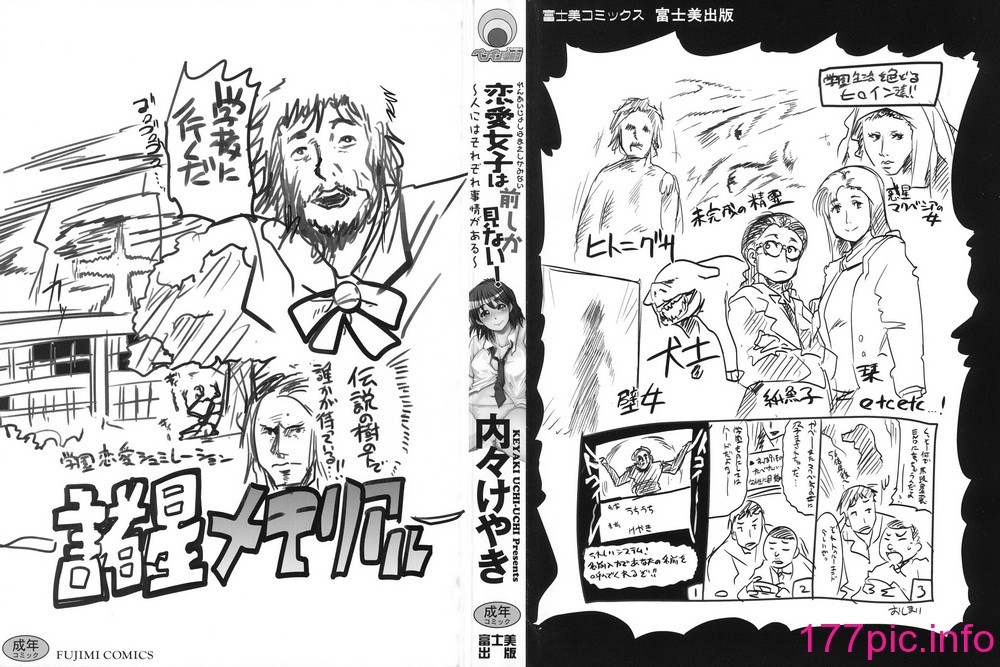 富士美コミックス 富士美出版
学園生活を彩どる
ヒロイン達!!
惑星
マクベシアの
女
未完成の精霊
ヒトニグサ
犬士
壁女
紙魚子
栞
etcetc…!
うちうち
けやき
うれしいシステム!
名前入力であなたの名前を
呼んでくれるぞ!!
1
2
3
おしまい
れんあいじょしはまえしかみない
恋愛女子は前しか見ない!
〜人にはそれぞれ事情がある〜
内々けやき
KEYAKI UCHI-UCHI Presents
成年
コミック
富士美
出版
学校に
行くんだ
ゴゴゴゴゴ…
伝説の樹の下で
誰かが待っている?!!
学園恋愛シュミレーション
諸星メモリアル
成年
コミック
FUJIMI COMICS
177pic.info